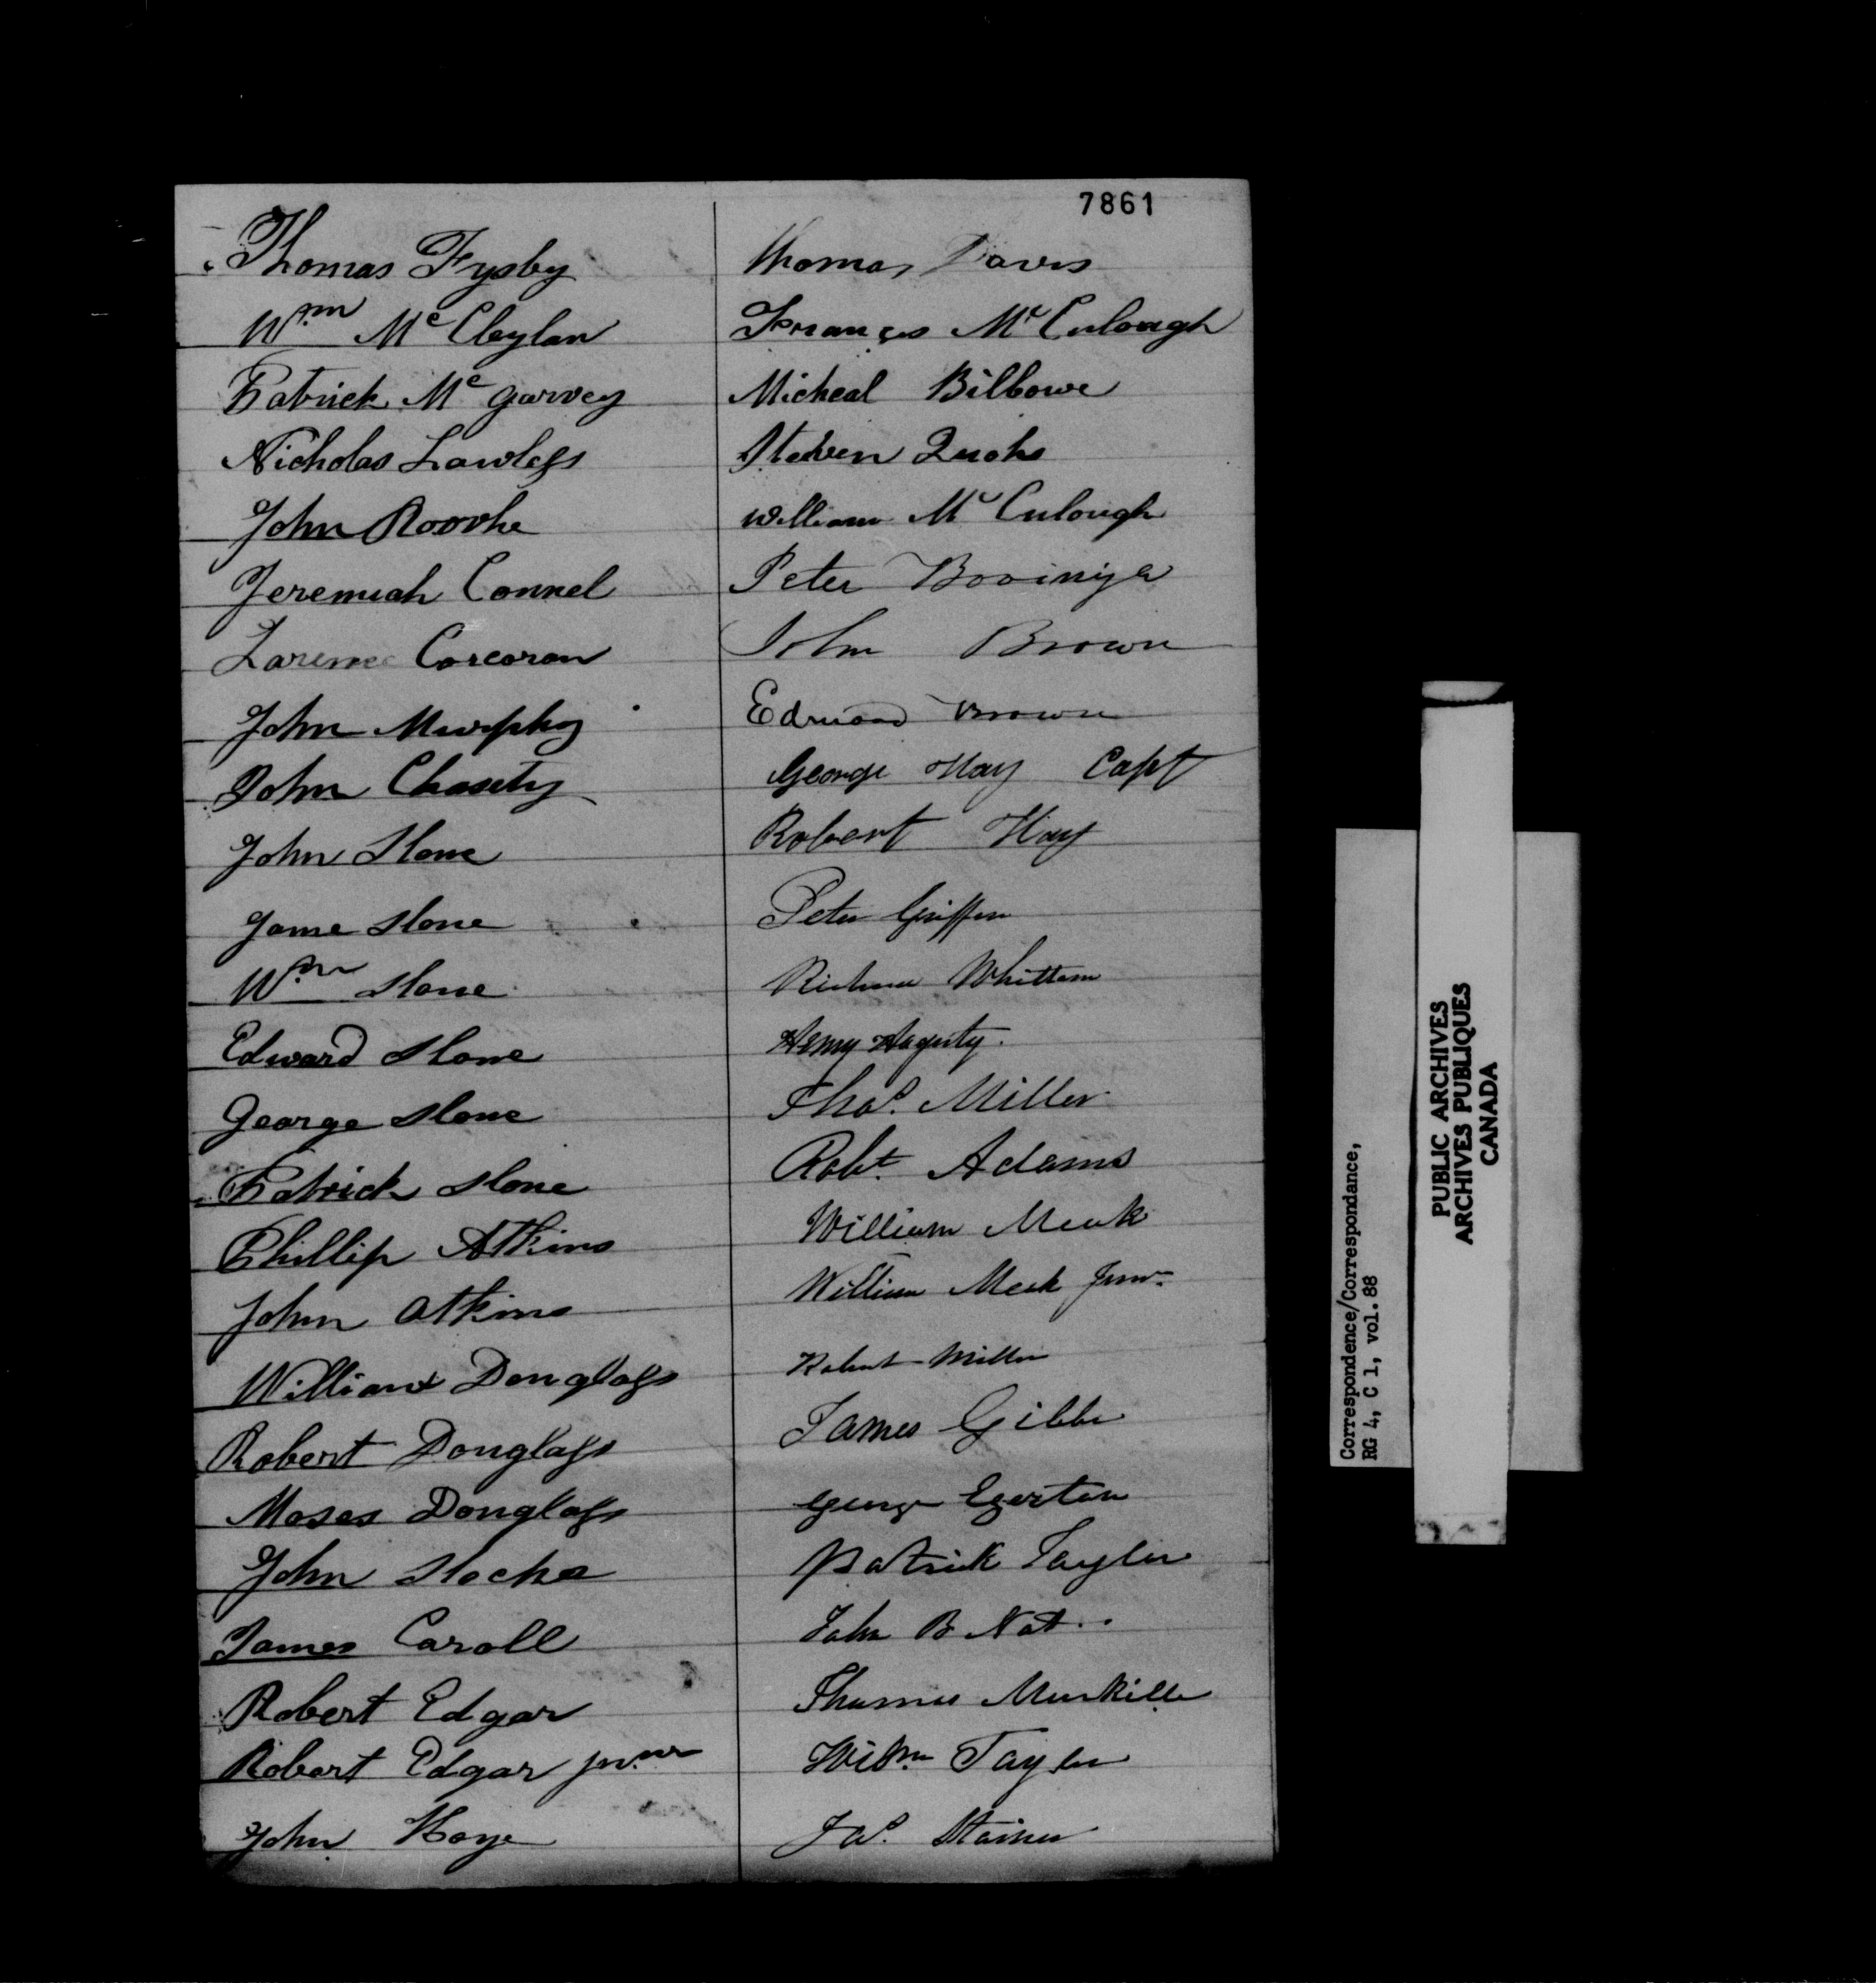 7861
Thomas Fysby
Wm Mc Cleylan
Patrick Mc garvey
Nicholas Lawless
John Roorke
Jeremiah Connel
Corcoran
John Murphy
John Chasety
John Slone
Jame Slone
Wm Slone
Edward Slone
George Slone
Patrick Slone
Phillip Atkins
John Atkins
William Douglass
Robert Douglass
Moses Douglass
John Slocke
James Caroll
Robert Edgar
Robert Edgar junr
John Hoye
Thomas Davis
Mc Culough
Micheal Bilbowe
Steven
William Mc Culough
Peter
John Brown
Edmond Brown
George Hay Capt
Robert Hay
Peter Griffen
Whittam
Henry Hagerty.
Thos. Miller
Robt. Adams
William Meek
William Meek Junr.
Robert Miller
James Gibb
George Egerton
Patrick Taylor
John B
Thomas
Wilm. Taylor
Jas.
Correspondence/Correspondance,
RG 4, C 1, vol. 88
PUBLIC ARCHIVES
ARCHIVES PUBLIQUES
CANADA